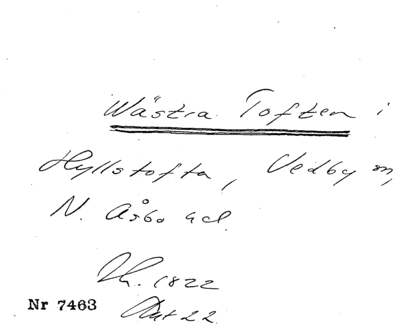 Wästra Toften i
Hyllstofta, Vedby sn,
N. Åsbo hd.
Th. 1822
Akt 22.
Nr 7463